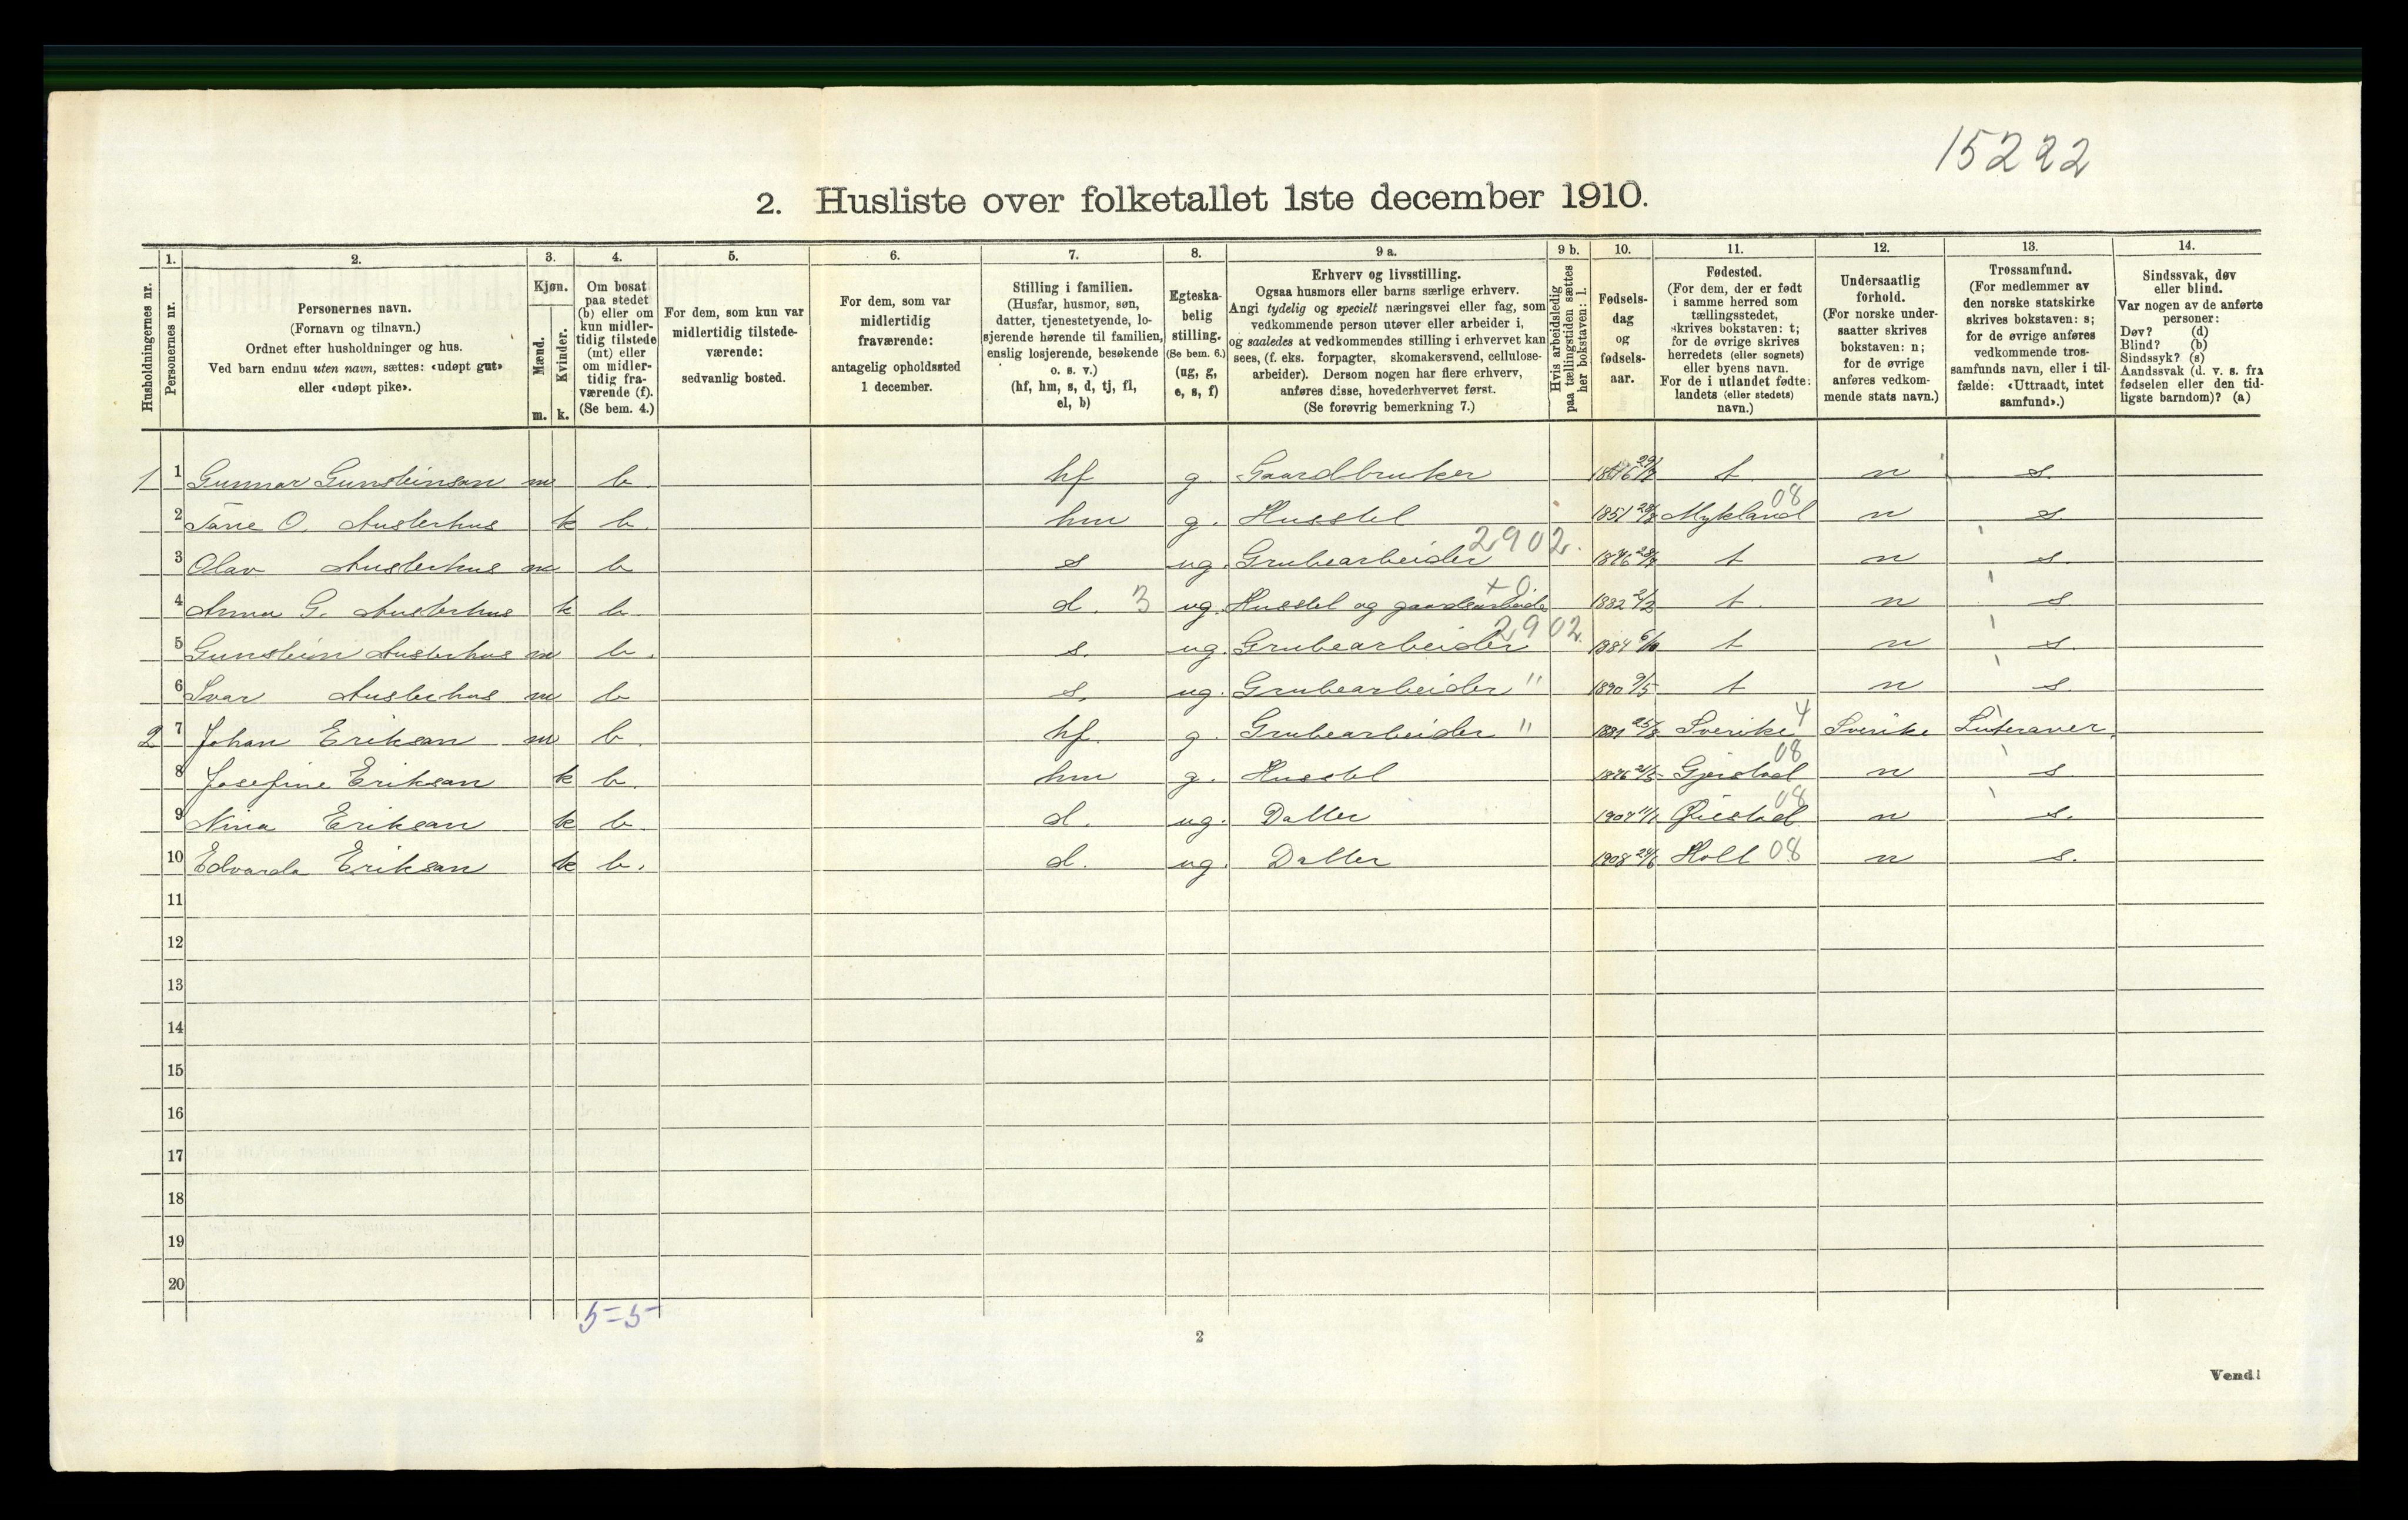 15222
2. Husliste over folketallet 1ste december 1910.
Husholdningernes nr.
1. Personernes nr.
2. Personernes navn. (Fornavn og tilnavn.) Ordnet efter husholdninger og hus. Ved barn endnu uten navn, sættes: «udøpt gut» eller «udøpt pike».
3. Kjøn. Mænd. m. Kvinder. k.
4. Om bosat paa stedet (b) eller om kun midlertidig tilstede (mt) eller om midlertidig fraværende (f). (Se bem. 4.)
5. For dem, som kun var midlertidig tilstedeværende: sedvanlig bosted.
6. For dem, som var midlertidig fraværende: antagelig opholdssted 1 december.
7. Stilling i familien. (Husfar, husmor, søn, datter, tjenestetyende, losjerende hørende til familien, enslig losjerende, besøkende o. s. v.) (hf, hm, s, d, tj, fl, el, b)
8. Egteskabelig stilling. (Se bem. 6.) (ug, g, e, s, f)
9 a. Erhverv og livsstilling. Ogsaa husmors eller barns særlige erhverv. Angi tydelig og specielt næringsvei eller fag, som vedkommende person utøver eller arbeider i, og saaledes at vedkommendes stilling i erhvervet kan sees, (f. eks. forpagter, skomakersvend, cellulosearbeider). Dersom nogen har flere erhverv, anføres disse, hovederhvervet først. (Se forøvrig bemerkning 7.)
9 b. Hvis arbeidsledig paa tællingstiden sættes her bokstaven: l.
10. Fødselsdag og fødselsaar.
11. Fødested. (For dem, der er født i samme herred som tællingsstedet, skrives bokstaven: t; for de øvrige skrives herredets (eller sognets) eller byens navn. For de i utlandet fødte: landets (eller stedets) navn.)
12. Undersaatlig forhold. (For norske undersaatter skrives bokstaven: n; for de øvrige anføres vedkommende stats navn.)
13. Trossamfund. (For medlemmer av den norske statskirke skrives bokstaven: s; for de øvrige anføres vedkommende trossamfunds navn, eller i tilfælde: «Uttraadt, intet samfund».)
14. Sindssvak, døv eller blind. Var nogen av de anførte personer: Døv? (d) Blind? (b) Sindssyk? (s) Aandssvak (d. v. s. fra fødselen eller den tidligste barndom)? (a)
1 1 Gunnar Gunsteinson m b. hf g. Gaardbruker t. n s.
2 O. Austerhus k b. hm g. Husstel 1851 Mykland 08 n s.
3 Olav Austerhus m b s ug. Grubearbeider 2902. t n s.
4 Anna G. Austerhus k b. d. 3 ug. Husstel og gaardsarbeide +0 1882 t. n s
5 Gunstein Austerhus m b. s. ug. Grubearbeider 2902. 1884 t n s.
6 Ivar Austerhus m b s. ug. Grubearbeider " 1890 9/5 t n s.
2 7 Johan Erikson m b. hf. g. Grubearbeider " Sverike 4 Sverike Luteraner.
8 Josefine Erikson k b. hm g. Husstel Gjerstad 08 n s
9 Nina Erikson k b. d. ug. Datter 1904 11/1 Øiestad 08 n s.
10 Edvarda Erikson k b. d. ug. Datter 1908 24/6 Holt 08 n s.
11
12
13
14
15
16
17
18
19
20
5-5
2
Vend!